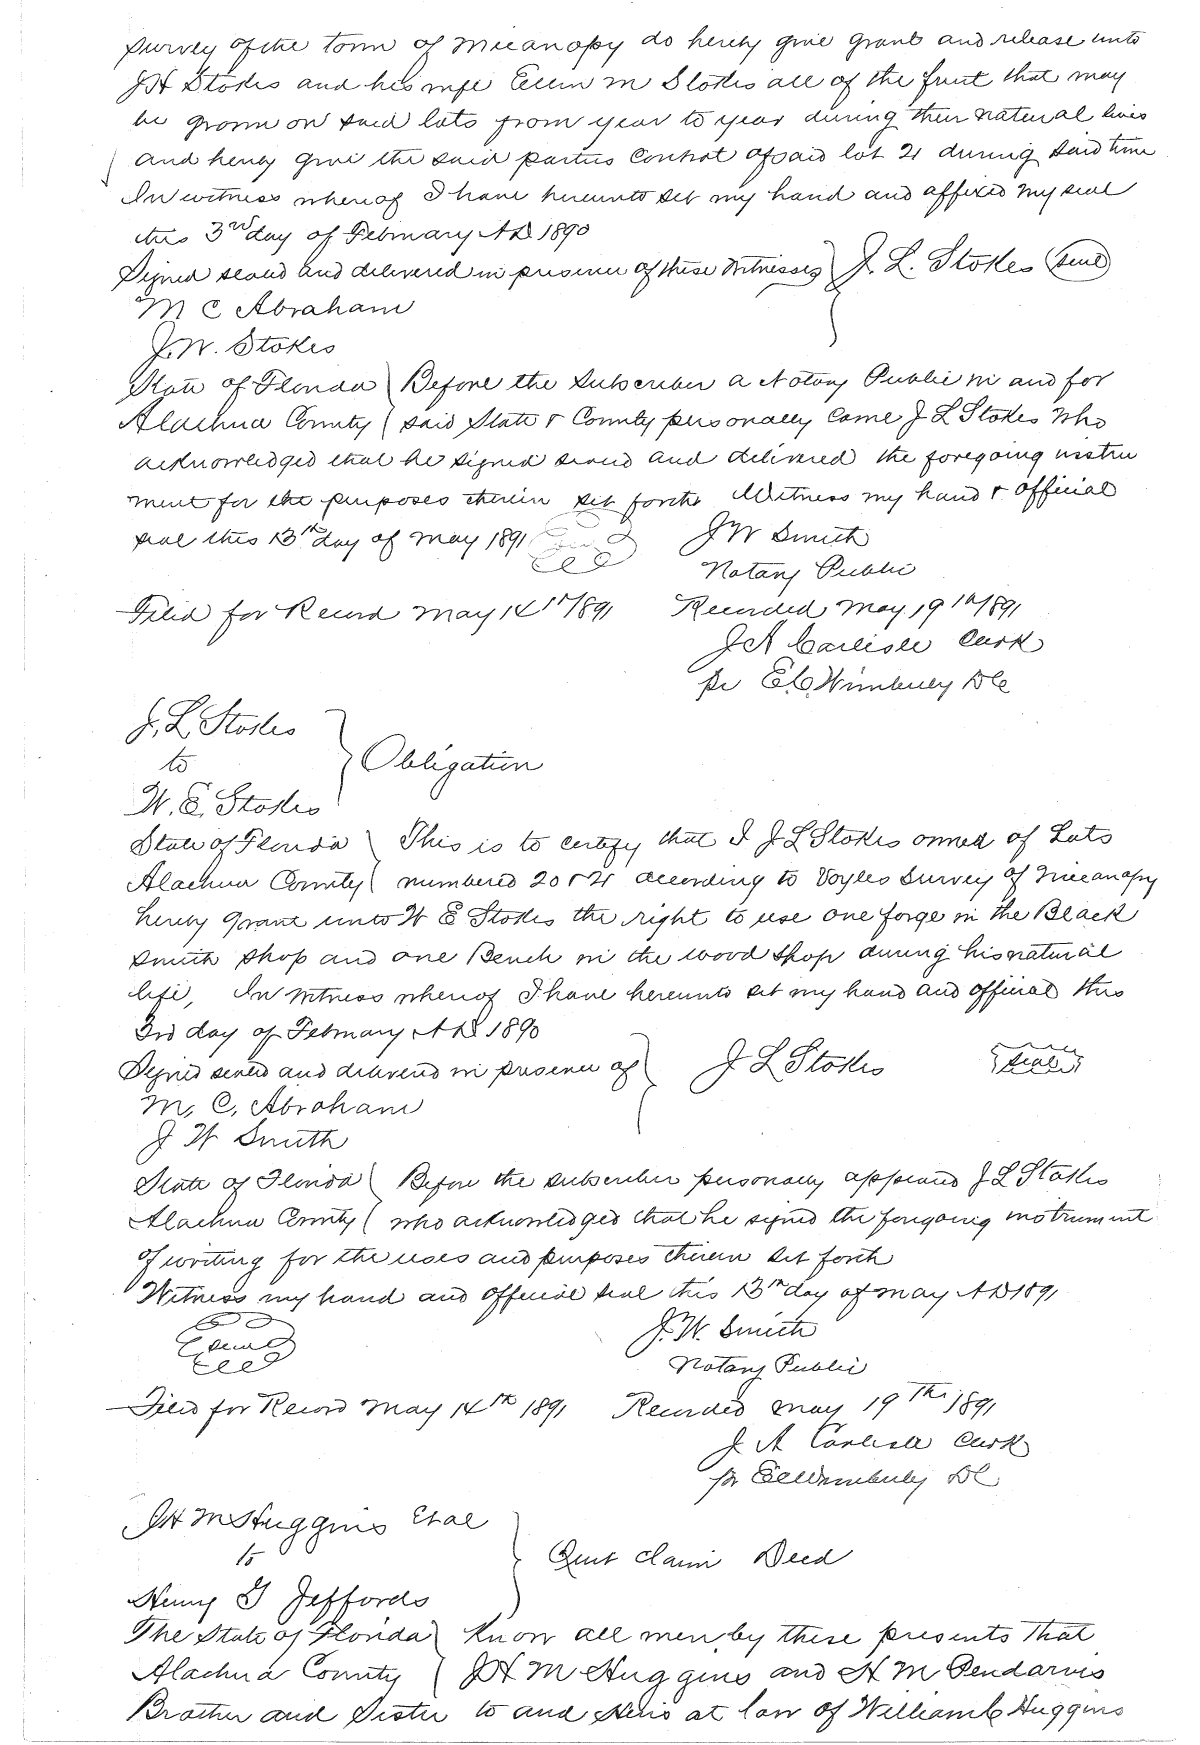 survey of the town of Micanopy do hereby give grant and release unto
J H Stokes and his wife Ellen M Stokes all of the fruit that may
be grown on said lots from year to year during their natural lives
and hereby give the said parties control of said lot 21 during said time
In witness whereof I have hereunto set my hand and affixed my seal
this 3rd day of February A D 1890
Signed sealed and delivered in presence of these Witnesses J. L. Stokes (seal)
M C Abraham
J. W. Stokes
State of Florida Before the Subscriber a Notary Public in and for
Alachua County said State & County personally came J L Stokes Who
acknowledged that he signed sealed and delivered the foregoing instru
ment for the purposes therein set forth Witness my hand & official
seal this 13th day of May 1891 J W Smith
Notary Public
Filed for Record May 14th 1891 Recorded May 19th 1891
J A Carlisle Clerk
pr E. C. Wimberly D C
J. L. Stokes
to Obligation
W. E. Stokes
State of Florida This is to certify that I J L Stokes owned of Lots
Alachua County numbered 20 & 21 according to Voyles Survey of Micanopy
hereby grant unto W E Stokes the right to use one forge in the Black
smith shop and one Bench in the wood shop during his natural
life, In witness whereof I have hereunto set my hand and official this
3rd day of February A D 1890
Signed sealed and delivered in presence of J L Stokes seal
M. C. Abraham
J W Smith
State of Florida Before the subscriber personally appeared J L Stokes
Alachua County who acknowledged that he signed the foregoing instrument
of writing for the uses and purposes therein set forth
Witness my hand and official seal this 13th day of May A D 1891
seal J. W. Smith
Notary Public
Filed for Record May 14th 1891 Recorded May 19Th 1891
J A Carlisle Clerk
pr E C Wimberly D C
J H M Huggins Et al
to Quit Claim Deed
Henry G Jeffords
The State of Florida Know all men by these presents That
Alachua County J H M Huggins and H M Pendarvis
Brother and Sister to and Heirs at law of William C Huggins